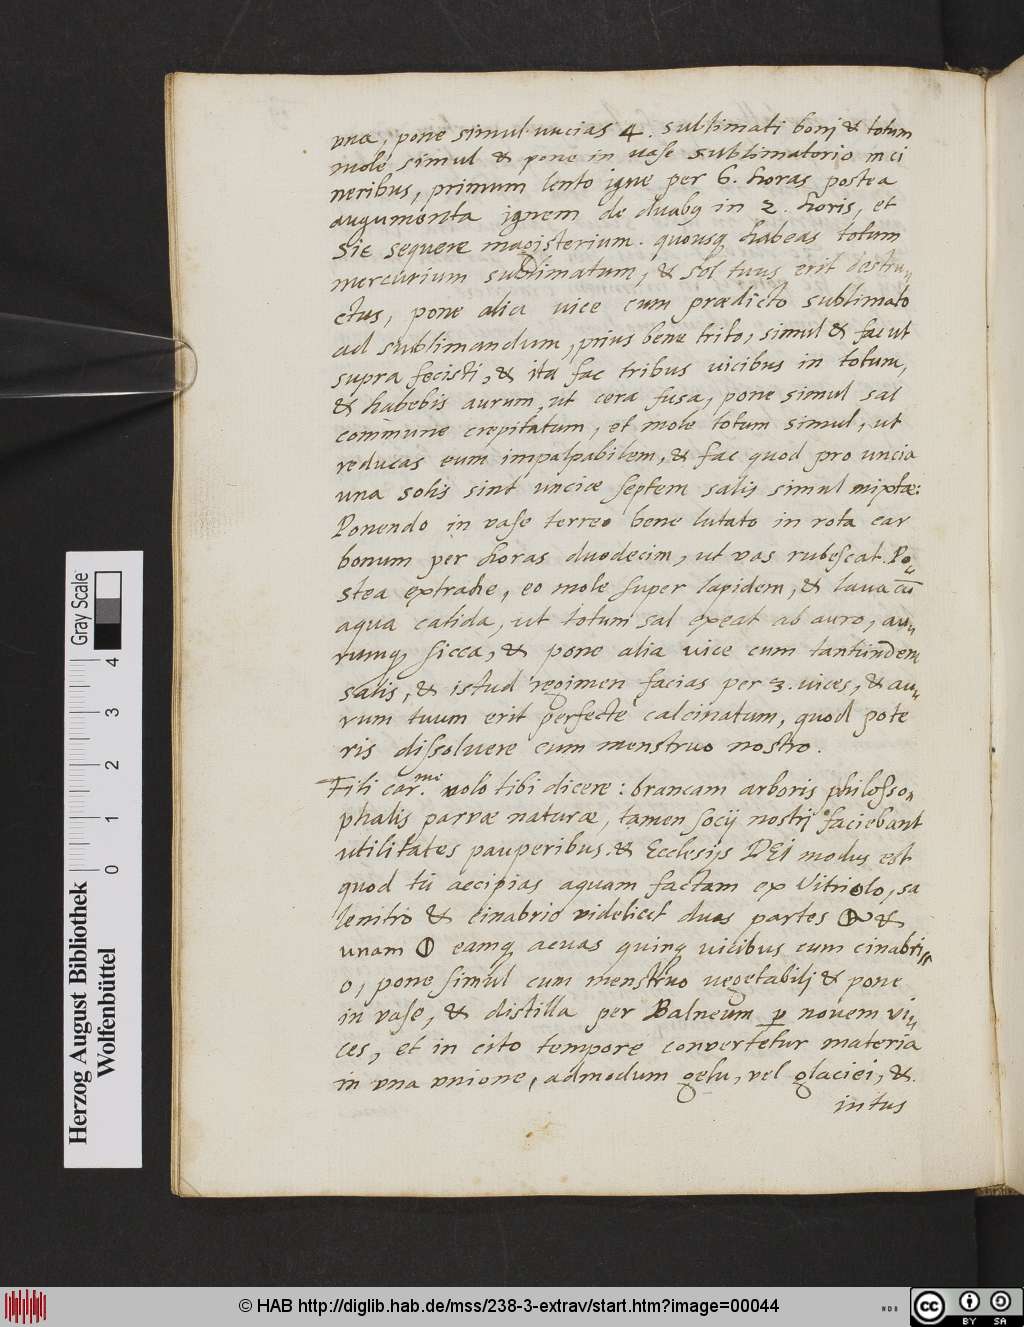 vna, pone simul uncias 4. sublimati bonj & totum
mole simul & pone in vase sublimatorio in ci
neribus, primum lento igne per 6. horas postea
augumenta ignem de duabq in 2. horis, et
Sic sequere magisterium. quousq habeas totum
mercurium sublimatum, & sol tuus erit destru,,
ctus, pone alia vice cum prædicto sublimato
ad sublimandum, prius bene trito, simul & fac ut
supra fecisti, & ita fac tribus vicibus in totum,
& habebis aurum, ut cera fusa, pone simul sal
commune crepitatum, et mole totum simul, ut
reducas eum impalpabilem, & fac quod pro uncia
una solis sint unciæ septem salis simul mixtæ:
Ponendo in vase terreo bene lutato in rota car
bonum per horas duodecim, ut vas rubescat. Po,,
stea extrahe, eo mole super lapidem, & laua cũ
aqua calida, ut totum sal exeat ab auro, au,,
rumq sicca, & pone alia vice cum tantundem
salis, & istud regimen facias per 3. vices, & au,,
rum tuum erit perfecte calcinatum, quod pote
ris dissoluere cum menstruo nostro.
Fili car.me volo tibi dicere: brancam arboris philosso,,
phalis parvæ naturæ, tamen socij nostrj faciebant
utilitates pauperibus. & Ecclesijs DEI modus est
quod tu accipias aquam factam ex Vitriolo, sa
lenitro & cinabrio videlicet duas partes &
unam eamq acuas quinq vicibus cum cinabri,,
o, pone simul cum menstruo vegetabilj & pone
in vase, & distilla per Balneum p novem vi,,
ces, et in cito tempore convertetur materia
in vna vnione, admodum gelu, vel glaciei, &.
intus
Herzog August Bibliothek
Wolfenbüttel
0 1 2 3 4
Gray Scale
© HAB http://diglib.hab.de/mss/238-3-extrav/start.htm?image=00044
NDB
cc BY SA